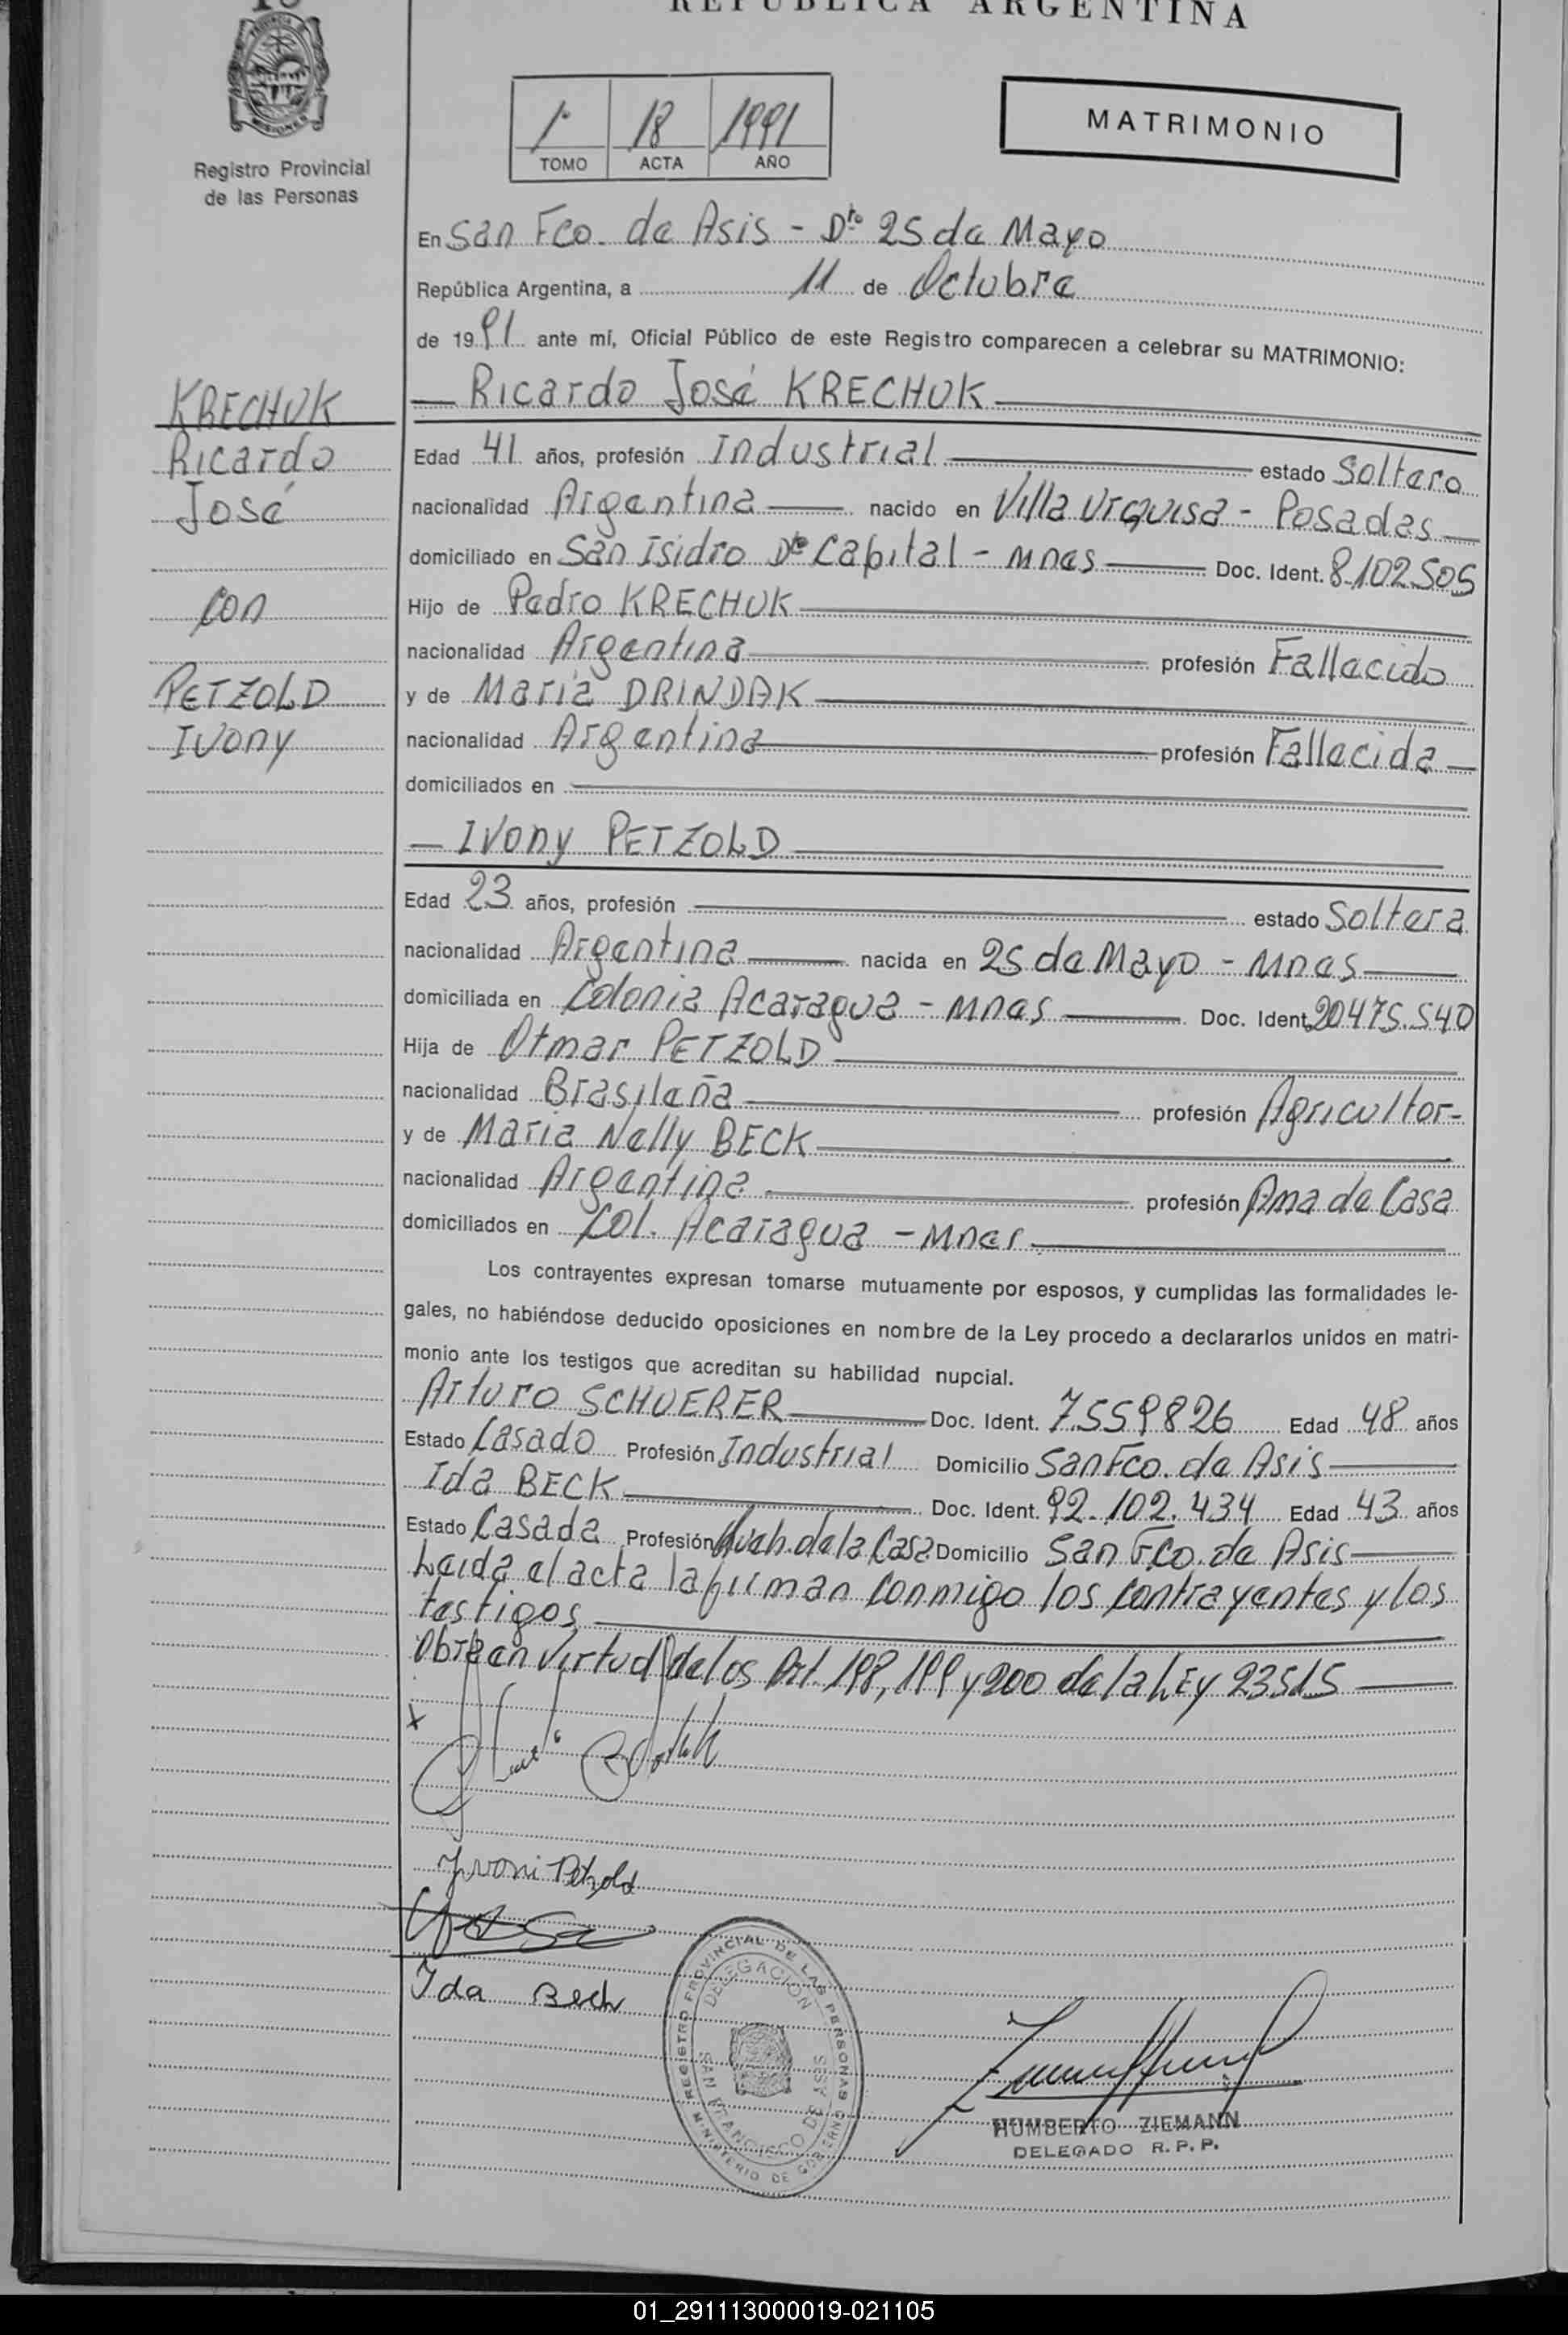 REPUBLICA ARGENTINA
PROVINCIA DE MISIONES
Registro Provincial
de las Personas
1º 18 1991
TOMO ACTA AÑO
MATRIMONIO
En San Fco. de Asis - Dto 25 de Mayo
República Argentina, a 11 de Octubre
de 1991 ante mí, Oficial Público de este Registro comparecen a celebrar su MATRIMONIO:
KRECHUK
Ricardo
José
con
PETZOLD
Ivony
Ricardo José KRECHUK
Edad 41 años, profesión Industrial estado Soltero
nacionalidad Argentina nacido en Villa Urquisa - Posadas
domiciliado en San Isidro Dto Capital - Mnes Doc. Ident. 8.102.505
Hijo de Pedro KRECHUK
nacionalidad Argentina profesión Fallecido
y de Maria DRINDAK
nacionalidad Argentina profesión Fallecida
domiciliados en
Ivony PETZOLD
Edad 23 años, profesión estado Soltera
nacionalidad Argentina nacida en 25 de Mayo - Mnes
domiciliada en Colonia Acaragua - Mnes Doc. Ident. 20.475.540
Hija de Otmar PETZOLD
nacionalidad Brasileña profesión Agricultor
y de Maria Nelly BECK
nacionalidad Argentina profesión Ama de Casa
domiciliados en Col. Acaragua - Mnes
Los contrayentes expresan tomarse mutuamente por esposos, y cumplidas las formalidades le-
gales, no habiéndose deducido oposiciones en nombre de la Ley procedo a declararlos unidos en matri-
monio ante los testigos que acreditan su habilidad nupcial.
Arturo SCHUERER Doc. Ident. 7.559.826 Edad 48 años
Estado Casado Profesión Industrial Domicilio San Fco. de Asis
Ida BECK Doc. Ident. 92.102.434 Edad 43 años
Estado Casada Profesión Queh. de la Casa Domicilio San Fco. de Asis
Leida el acta la firman conmigo los contrayentes y los
testigos
Obra en virtud de los Art. 198, 199 y 200 de la LEy 23.515
x
Yvoni Petzold
Ida Beck
REGISTRO PROVINCIAL DE LAS PERSONAS
MINISTERIO DE GOBIERNO
DELEGACION
SAN FRANCISCO DE ASIS
HUMBERTO ZIEMANN
DELEGADO R.P.P.
01_291113000019-021105